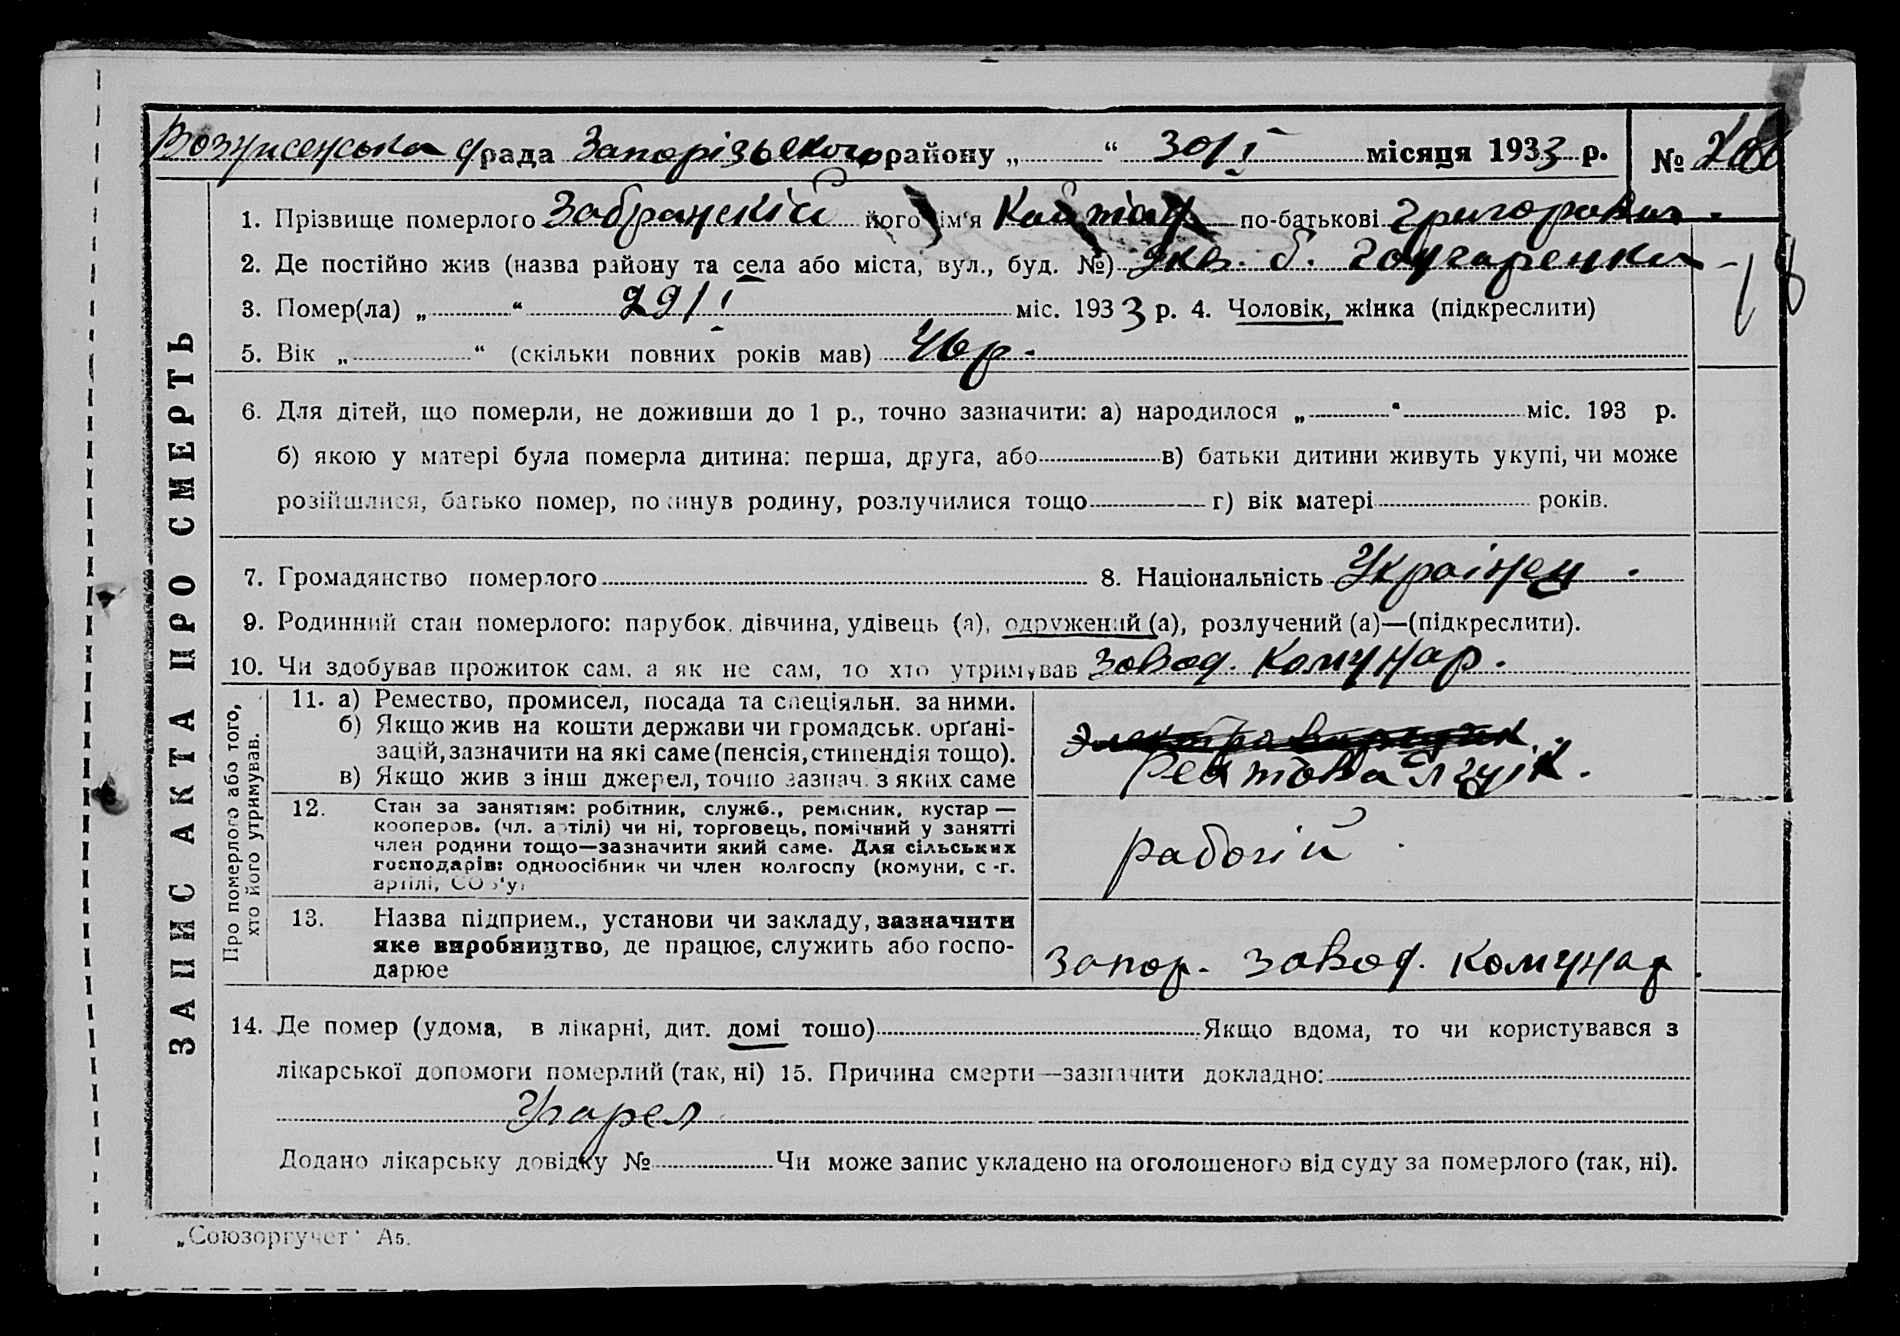 Вознисенська рада Запорізького району „ “ 30/I місяця 1933 р. №
1. Прізвище померлого Забранскій його ім'я по-батькові Григорович
2. Де постійно жив (назва району та села або міста, вул., буд. №) б. Гончаренка
3. Помер(ла) „ “ 29/I міс. 1933 р. 4. Чоловік, жінка (підкреслити)
5. Вік „ “ (скільки повних років мав) 46 р.
18
6. Для дітей, що померли, не доживши до 1 р., точно зазначити: а) народилося „ “ міс. 193 р.
б) якою у матері була померла дитина: перша, друга, або в) батьки дитини живуть укупі, чи може
розійшлися, батько помер, покинув родину, розлучилися тощо г) вік матері років.
7. Громадянство померлого 8. Національність Українец.
9. Родинний стан померлого: парубок, дівчина, удівець (а), одружений (а), розлучений (а)—(підкреслити).
10. Чи здобував прожиток сам, а як не сам, то хто утримував завод. Комунар.
ЗАПИС АКТА ПРО СМЕРТЬ
Про померлого або того,
хто його утримував.
11. а) Ремество, промисел, посада та спеціяльн. за ними.
б) Якщо жив на кошти держави чи громадськ. орґані-
зацій, зазначити на які саме (пенсія, стипендія тощо).
в) Якщо жив з інш джерел, точно зазнач. з яких саме
12. Стан за занятіям: робітник, служб., ремісник, кустар —
кооперов. (чл. артілі) чи ні, торговець, помічний у занятті
член родини тощо—зазначити який саме. Для сільських
господарів: одноосібник чи член колгоспу (комуни, с.-г.
артілі, СОЗ'у)
рабочій
13. Назва підприєм., установи чи закладу, зазначити
яке виробництво, де працює, служить або госпо-
дарює
Запор. завод. Комунар.
14. Де помер (удома, в лікарні, дит. домі тошо) Якщо вдома, то чи користувався з
лікарської допомоги померлий (так, ні) 15. Причина смерти—зазначити докладно:
Додано лікарську довідку № Чи може запис укладено на оголошеного від суду за померлого (так, ні).
„Союзоргучет“ А5.